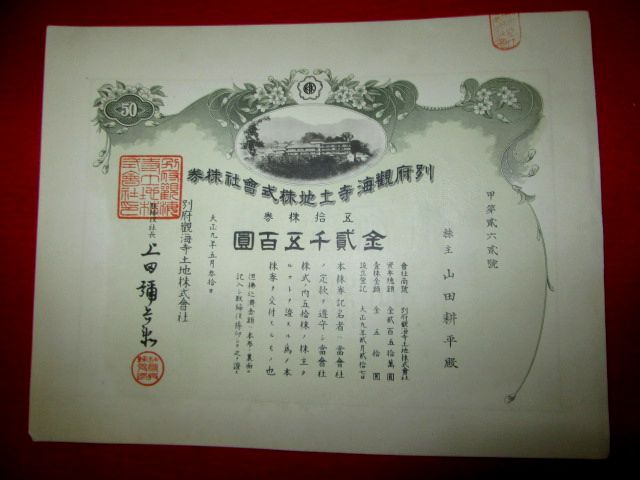 50
別府觀海寺土地株式會社株券
五拾株券
金貳千五百圓
甲第貳六貳號
株主 山田耕平殿
會社商號 別府觀海寺土地株式會社
資本總額 金貳百五拾萬圓
壹株金額 金五拾圓
設立登記 大正九年貳月貳拾七日
本株券記名者ハ當會社
ノ定款ヲ遵守シ當會社
株式ノ内五拾株ノ株主タ
ルコトヲ證スル爲メ本
株券ヲ交付スルモノ也
大正九年五月參拾日
別府觀海寺土地株式會社